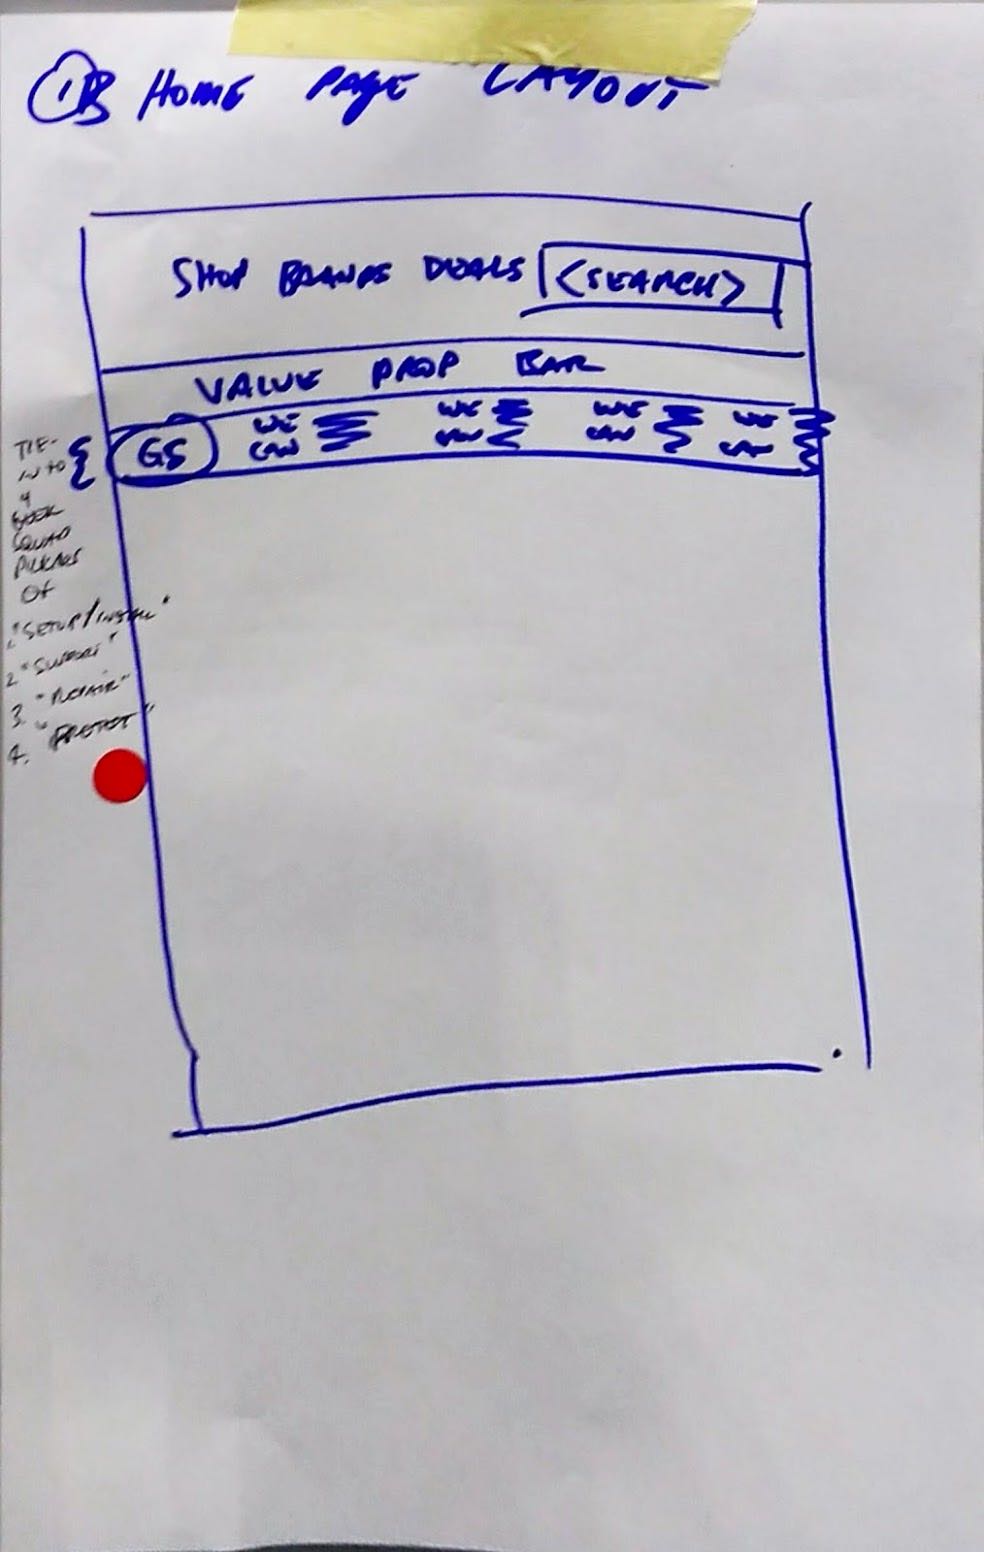 1B HOME PAGE LAYOUT
SHOP BRANDS DEALS <SEARCH>
VALUE PROP BAR
GS WE CAN WE CAN WE CAN WE CAN
TIE-
IN TO
4
GEEK
SQUAD
PILLARS
OF
1. "SETUP/INSTALL"
2. "SUPPORT"
3. "REPAIR"
4. "PROTECT"